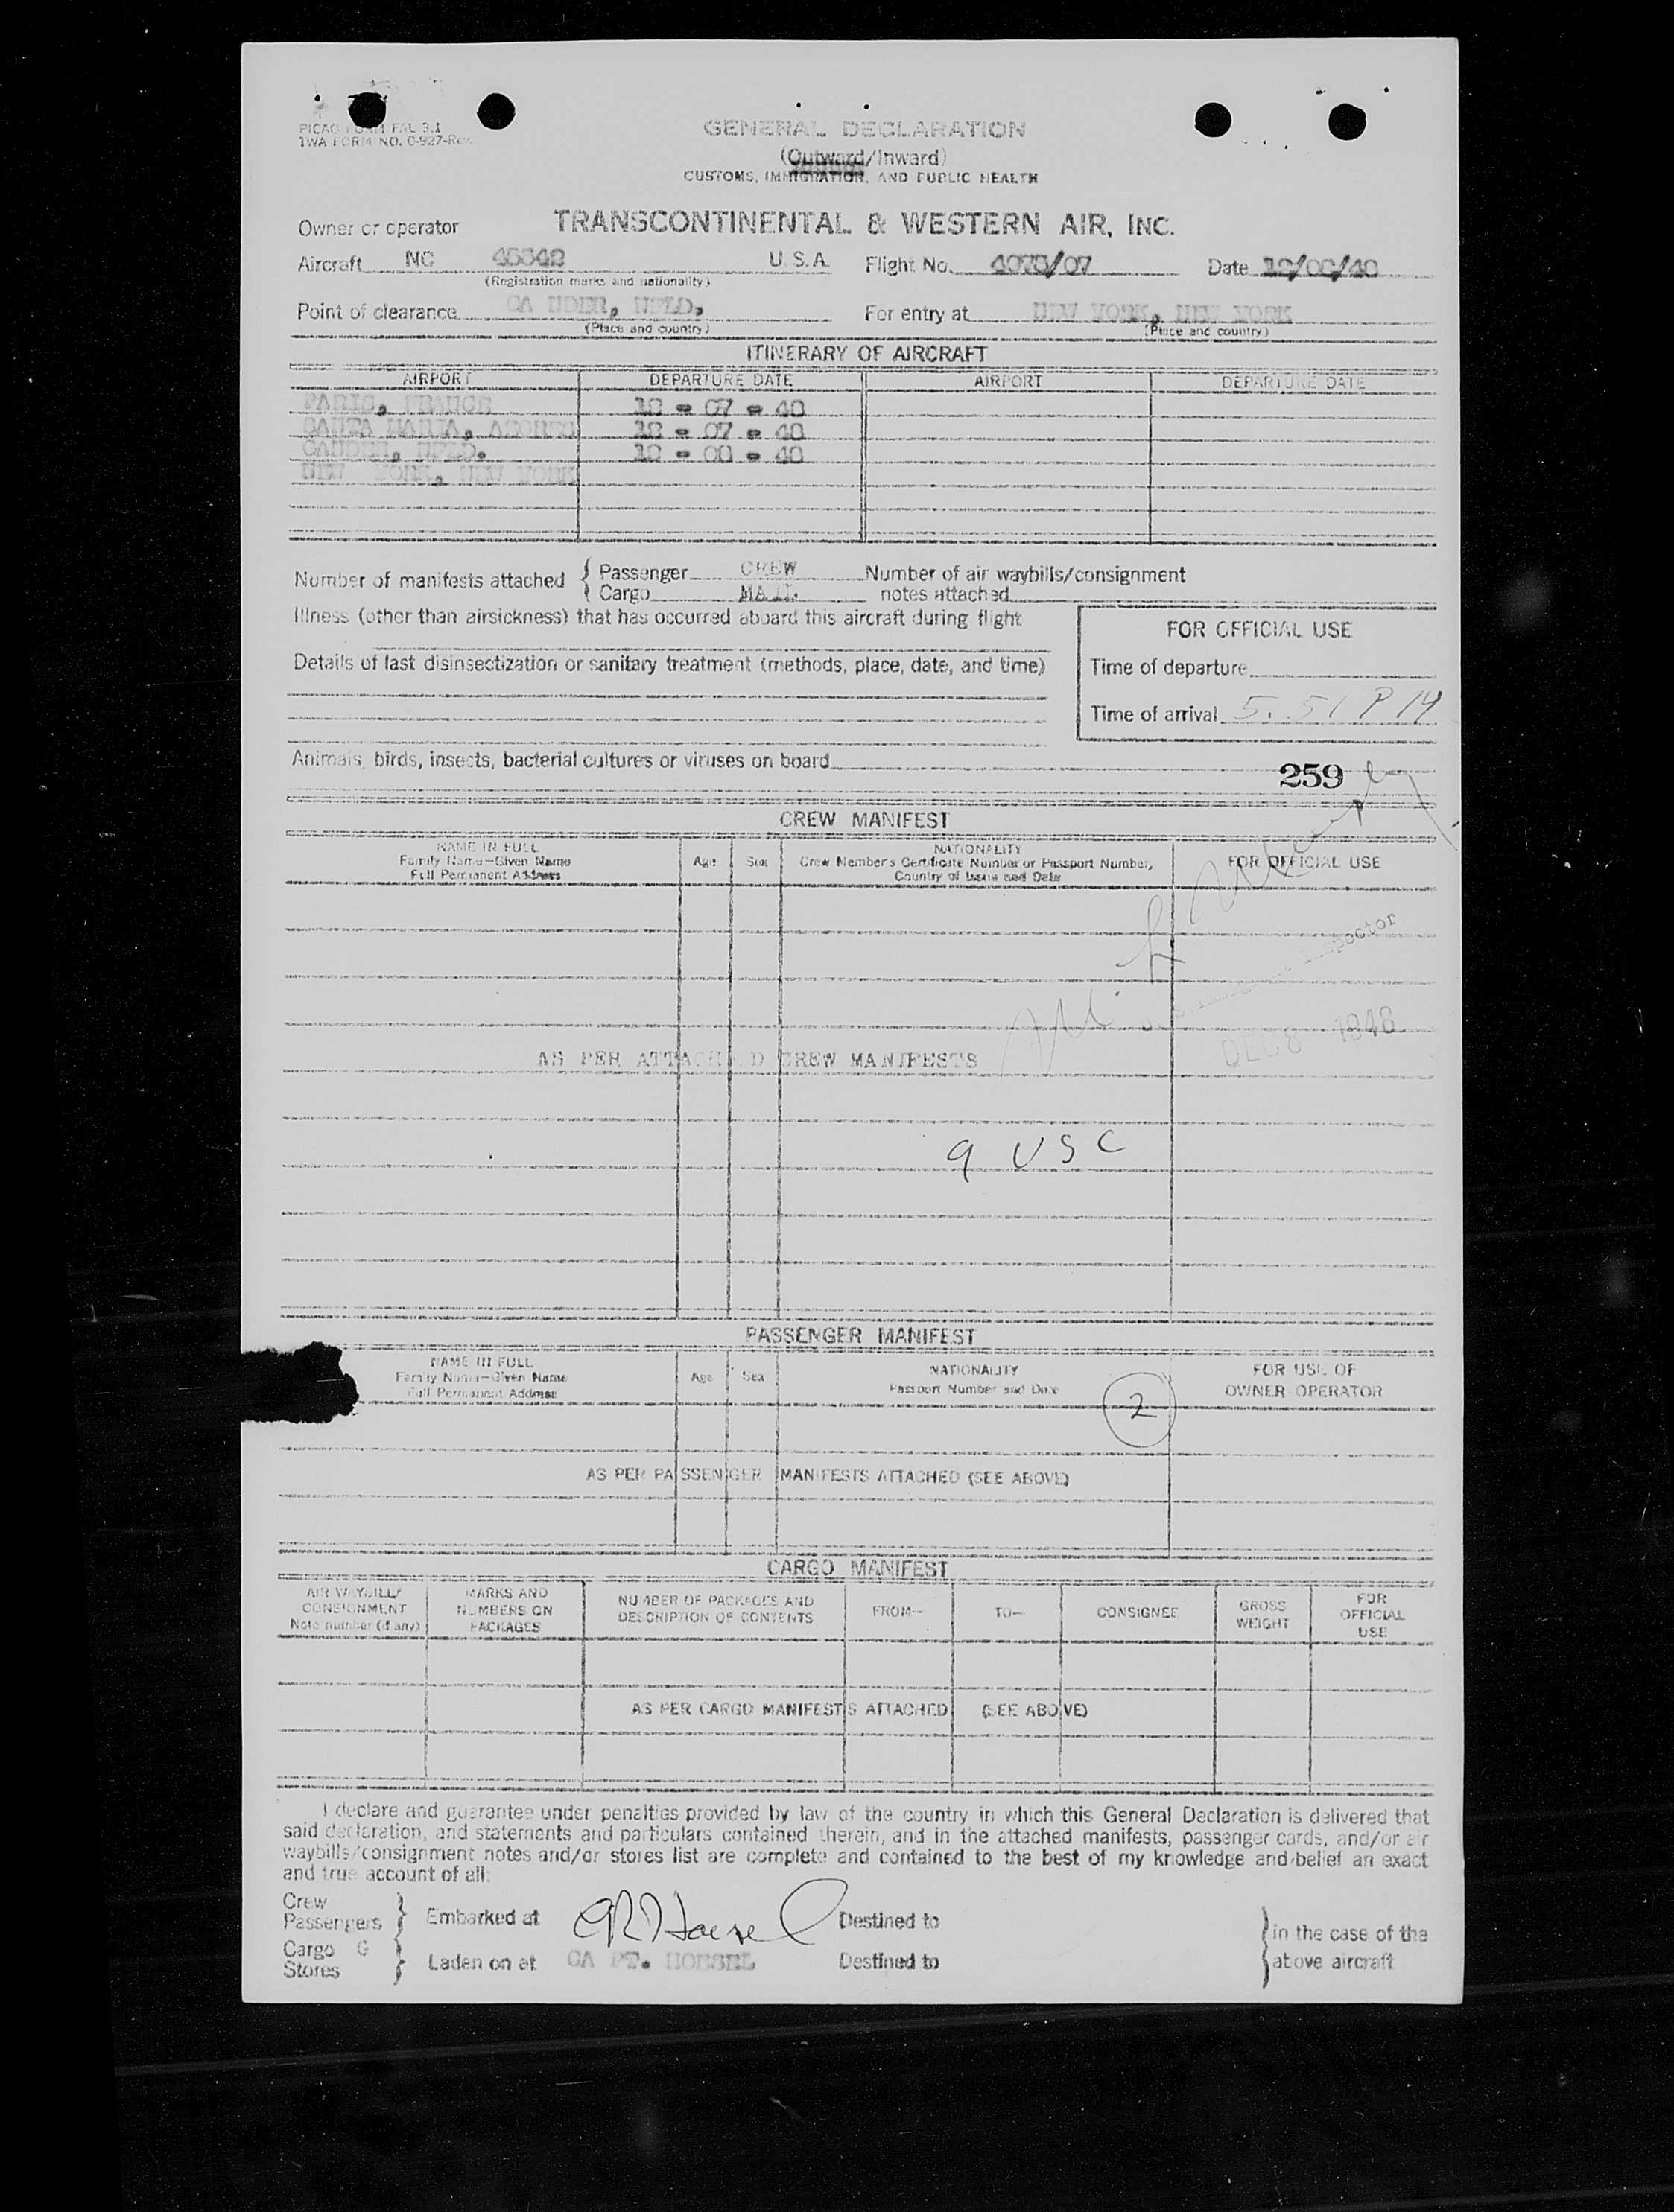 PICAO FORM FAL 3.1
TWA FORM NO. 0-927-Rev.
GENERAL DECLARATION
(Outward/Inward)
CUSTOMS, IMMIGRATION, AND PUBLIC HEALTH
Owner or operator TRANSCONTINENTAL & WESTERN AIR, INC.
Aircraft NC U.S.A. Flight No. Date
(Registration marks and nationality)
Point of clearance For entry at NEW YORK, NEW YORK
(Place and country) (Place and country)
ITINERARY OF AIRCRAFT
AIRPORT DEPARTURE DATE AIRPORT DEPARTURE DATE
PARIS, FRANCE
SANTA MARIA, AZORES
NEW YORK, NEW YORK
Number of manifests attached { Passenger CREW Number of air waybills/consignment
Cargo MAIL notes attached
Illness (other than airsickness) that has occurred aboard this aircraft during flight
FOR OFFICIAL USE
Details of last disinsectization or sanitary treatment (methods, place, date, and time)
Time of departure
Time of arrival 5.51 PM
Animals, birds, insects, bacterial cultures or viruses on board
259
CREW MANIFEST
NAME IN FULL
Family Name—Given Name
Full Permanent Address
Age Sex
NATIONALITY
Crew Member's Certificate Number or Passport Number,
Country of Issue and Date
FOR OFFICIAL USE
Inspector
DEC 8 1946
AS PER ATTACH D CREW MANIFESTS
9 USC
PASSENGER MANIFEST
NAME IN FULL
Family Name—Given Name
Full Permanent Address
Age Sex
NATIONALITY
Passport Number and Date
2
FOR USE OF
OWNER OPERATOR
AS PER PASSENGER MANIFESTS ATTACHED (SEE ABOVE)
CARGO MANIFEST
AIR WAYBILL/
CONSIGNMENT
Note number (if any)
MARKS AND
NUMBERS ON
PACKAGES
NUMBER OF PACKAGES AND
DESCRIPTION OF CONTENTS
FROM—
TO—
CONSIGNEE
GROSS
WEIGHT
FOR
OFFICIAL
USE
AS PER CARGO MANIFESTS ATTACHED (SEE ABOVE)
I declare and guarantee under penalties provided by law of the country in which this General Declaration is delivered that
said declaration, and statements and particulars contained therein, and in the attached manifests, passenger cards, and/or air
waybills/consignment notes and/or stores list are complete and contained to the best of my knowledge and belief an exact
and true account of all:
Crew
Passengers } Embarked at Destined to
Cargo
Stores } Laden on at CAPT. HOESEL Destined to
in the case of the
above aircraft